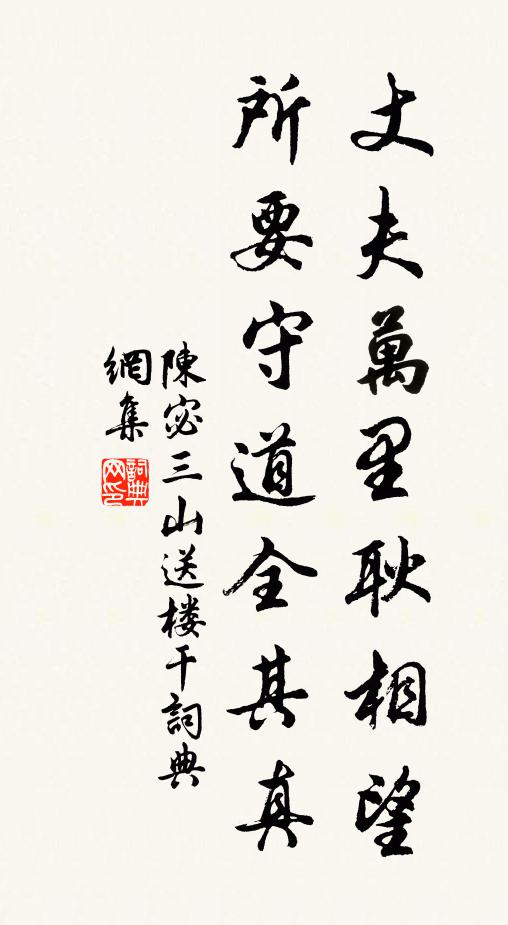 丈夫萬里耿相望
所要守道全其真
陳宓三山送楼干詞典
網集
詞典網印